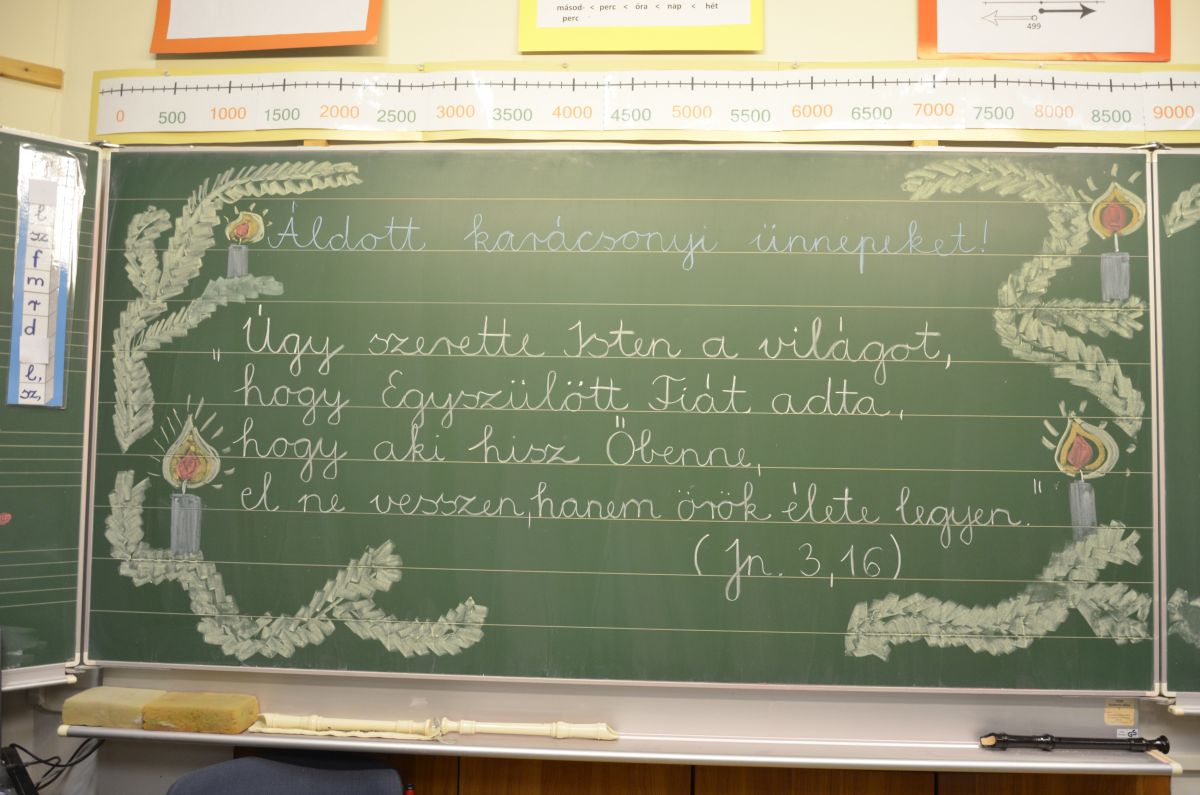 másod- < perc < óra < nap < hét
perc
499
0 500 1000 1500 2000 2500 3000 3500 4000 4500 5000 5500 6000 6500 7000 7500 8000 8500 9000
l
sz
f
m
r
d
l,
sz,
Áldott karácsonyi ünnepeket!
„Úgy szerette Isten a világot,
hogy Egyszülött Fiát adta,
hogy aki hisz Őbenne,
el ne vesszen, hanem örök élete legyen."
(Jn. 3,16)